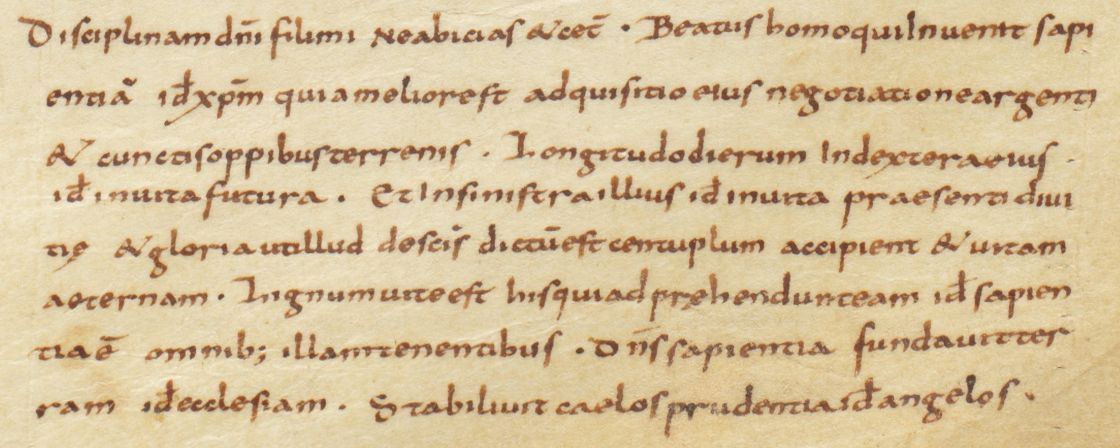 Disciplinam dn̄i fili mi Ne abicias & cet̄ · Beatus homo qui Invenit sapi
entiā id̄ xp̄m quia melior est adquisitio eius negotiatione argenti
& cunctis oppibus terrenis . Longitudo dierum In dextera eius .
id̄ in vita futura . Et In sinistra illius id̄ in vita praesenti divi
tię & gloria ut illud de sc̄is dictū est centuplum accipient & vitam
aeternam . Lignum vite est his qui adpręhenderunt eam id̄ sapien
tia ē omnib; illam tenentibus . Dn̄s sapientia fundavit ter
ram id̄ ecclesiam . Stabilivit caelos prudentia id̄ angelos .